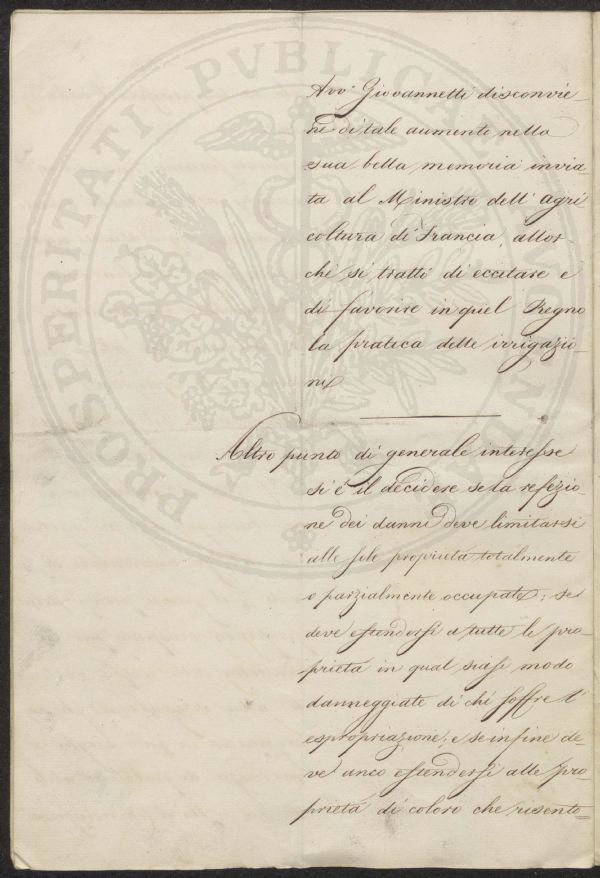 PROSPERITATI PVBLICAE
Avv.° Giovannetti disconvie=
ne di tale aumento nella
sua bella memoria invia=
ta al Ministro dell'agri
coltura di Francia, allor=
chè si trattò di eccitare e
di favorire in quel Regno
la pratica delle irrigazio=
ni
Altro punto di generale interesse
si è il decidere se la refezio=
ne dei danni deve limitarsi
alle sole proprietà totalmente
o parzialmente occupate; se
deve estendersi a tutte le pro=
prietà in qual siasi modo
danneggiate di chi soffre l'
espropriazione; e se infine de=
ve anco estendersi alle pro=
prietà di coloro che risento=